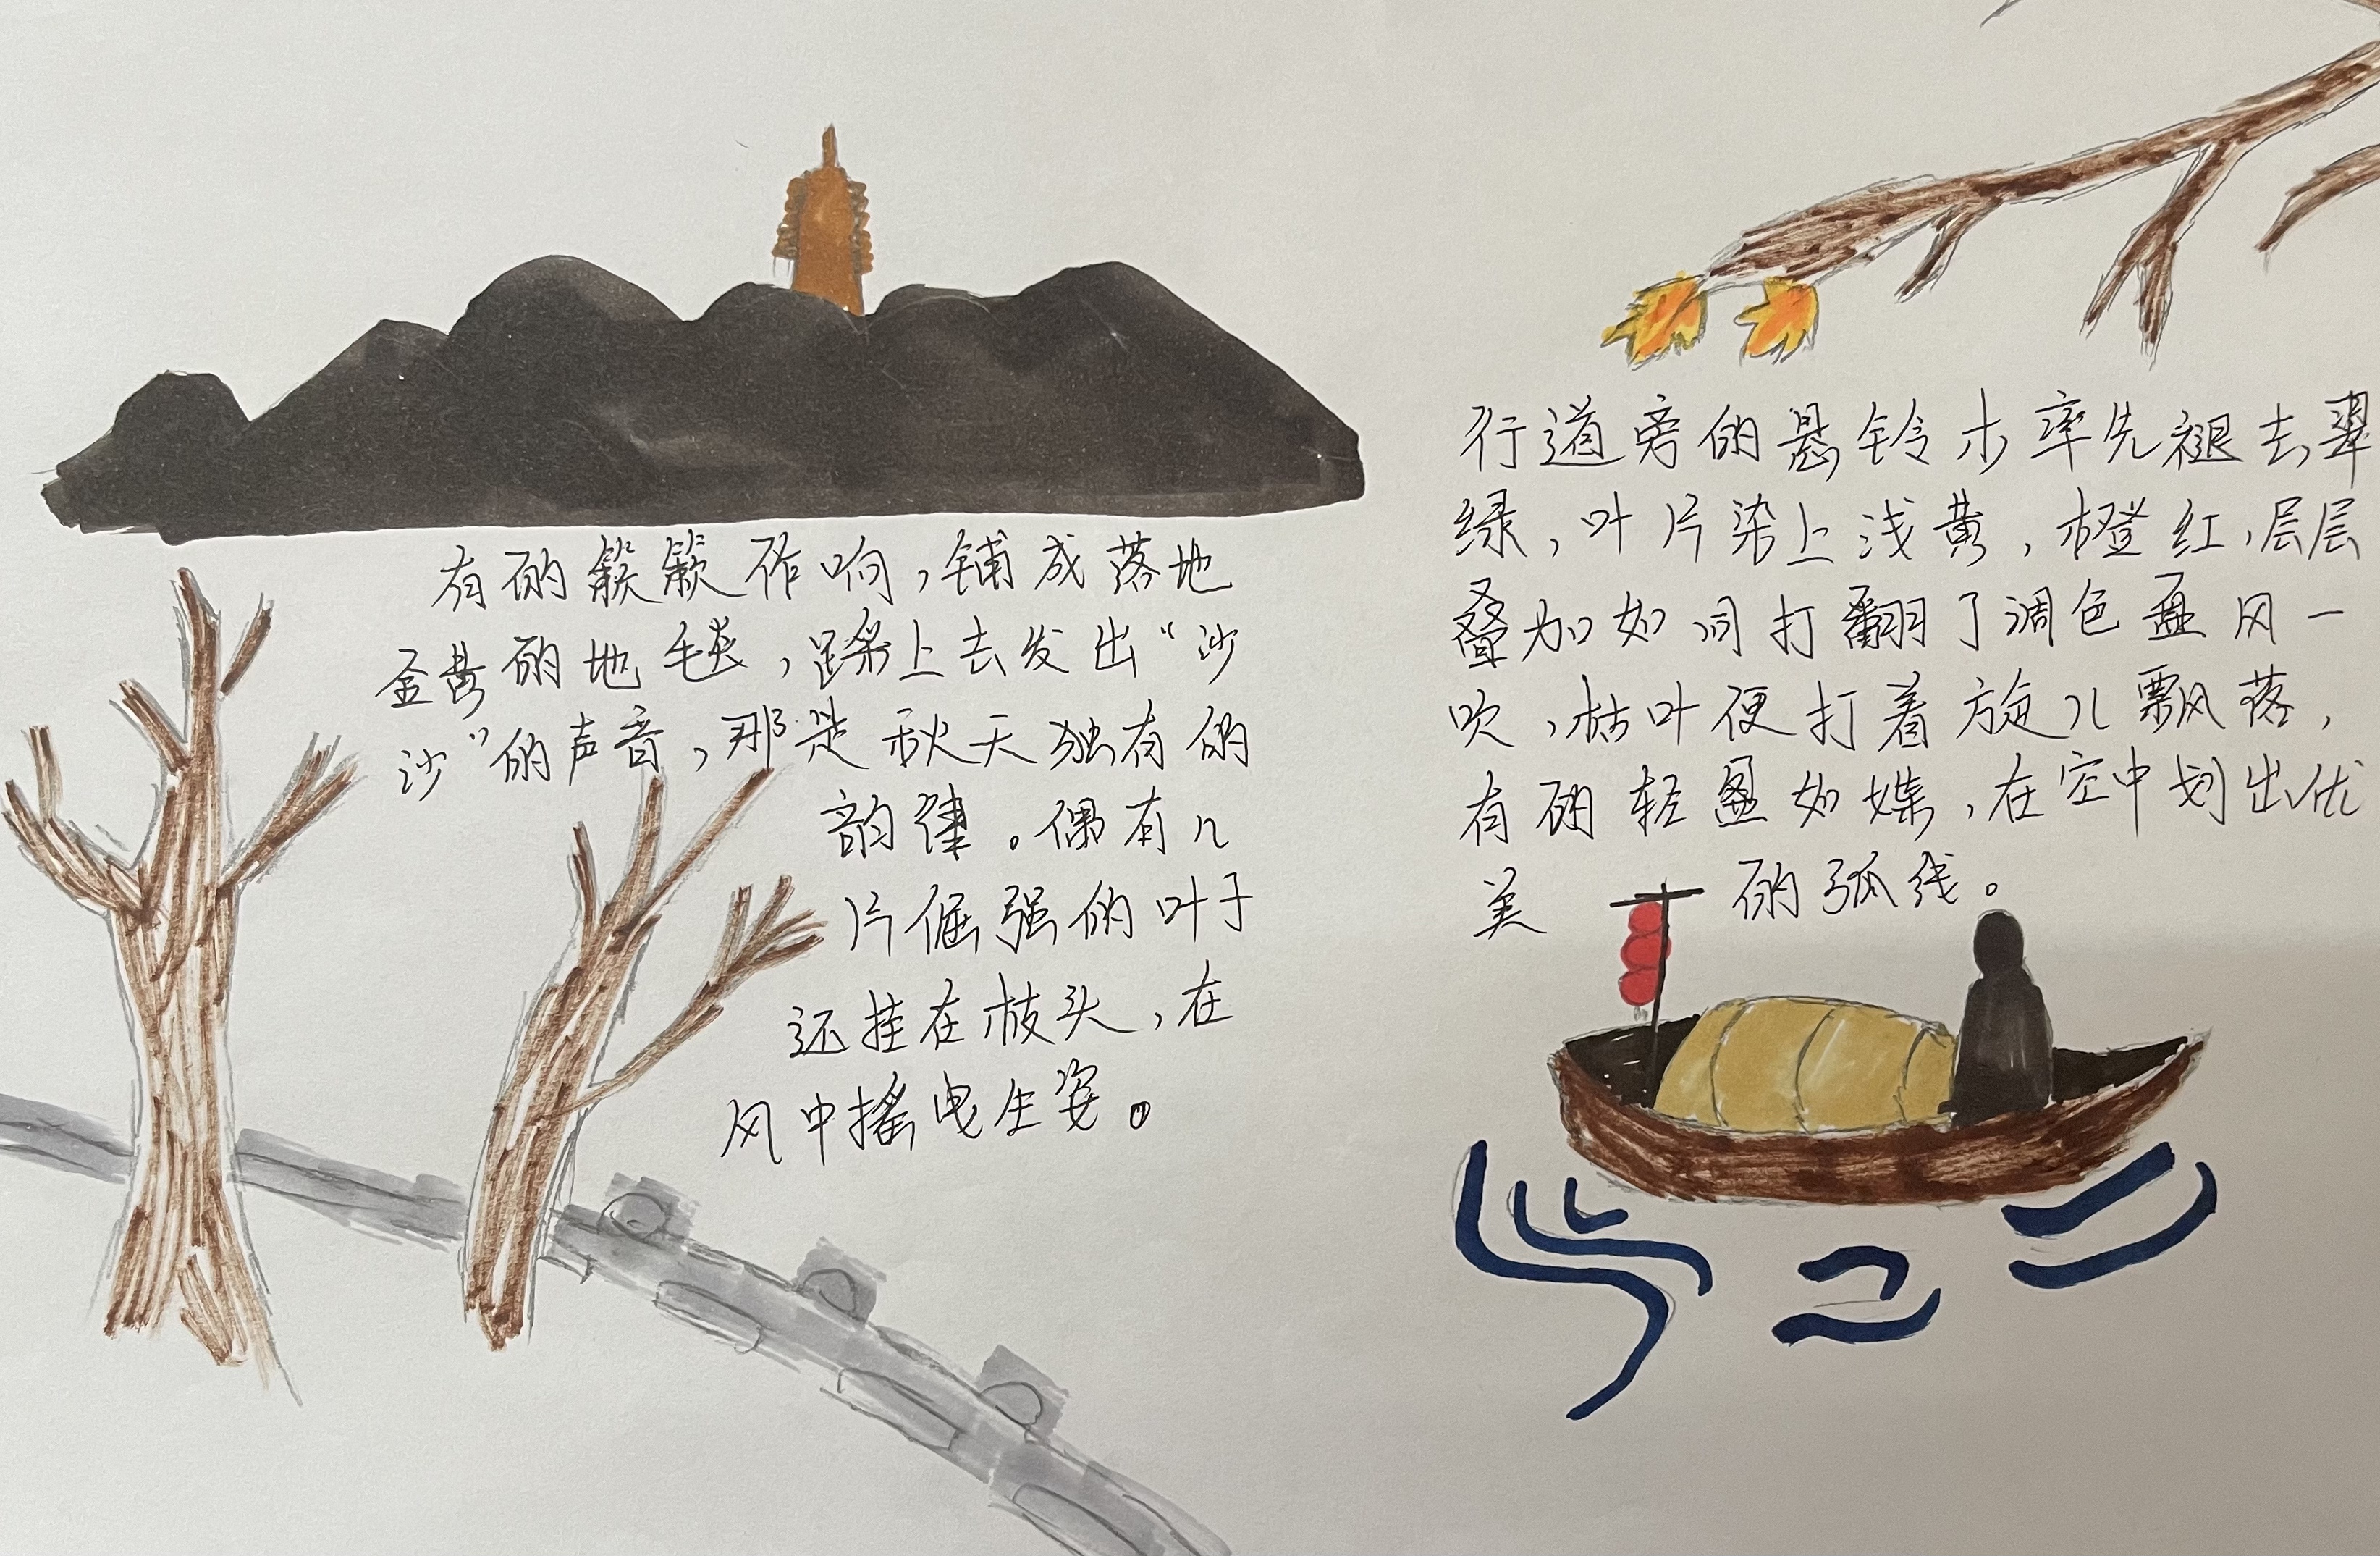 行道旁的悬铃木率先褪去翠
绿，叶片染上浅黄，橙红，层层
叠加如同打翻了调色盘风一
吹，枯叶便打着旋儿飘落，
有的轻盈如蝶，在空中划出优
美 的弧线。
有的簌簌作响，铺成落地
金黄的地毯，踩上去发出“沙
沙”的声音，那是秋天独有的
韵律。偶有几
片倔强的叶子
还挂在枝头，在
风中摇曳生姿。